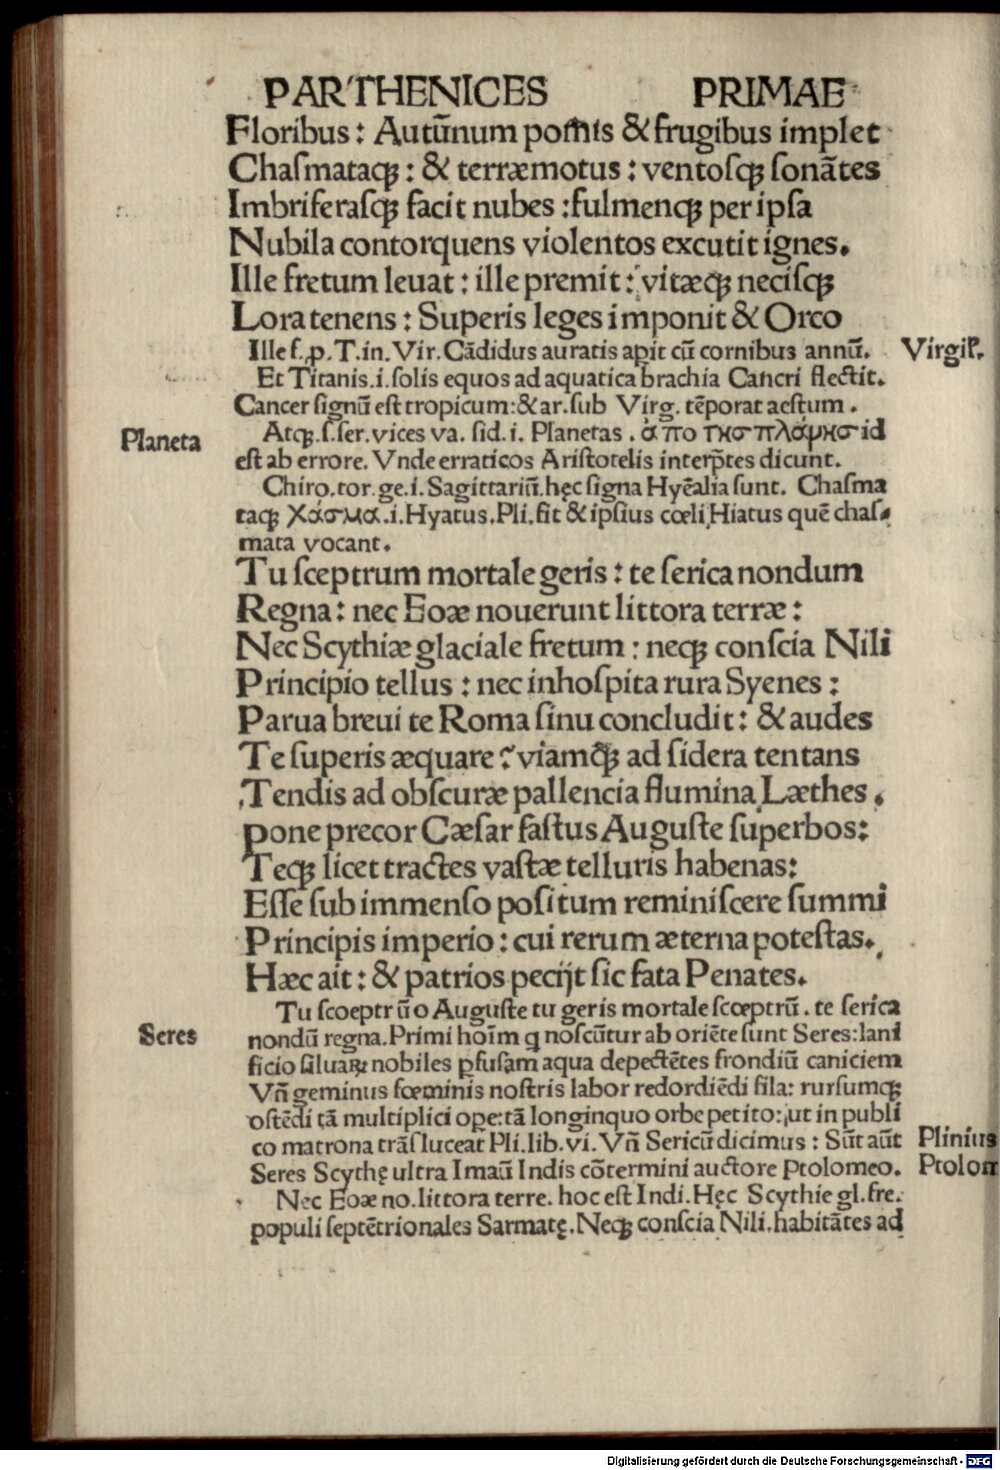 PARTHENICES PRIMAE
Floribus: Autũnum pom̃is & frugibus implet
Chaſmataqꝫ: & terræmotus: ventoſqꝫ ſonãtes
Imbriferaſqꝫ facit nubes: fulmenqꝫ per ipſa
Nubila contorquens violentos excutit ignes.
Ille fretum leuat: ille premit: vitæqꝫ neciſqꝫ
Lora tenens: Superis leges imponit & Orco
Ille ſ. ꝓ. T. in. Vir. Cãdidus auratis apit cũ cornibus annũ.
Virgil̃.
Et Titanis .i. ſolis equos ad aquatica brachia Cancri flectit.
Cancer ſignũ eſt tropicum: & ar. ſub Virg. tẽporat aeſtum.
Planeta
Atqꝫ. ſ. ſer. vices va. ſid. i. Planetas. ἀπο τησ πλάμησ id
eſt ab errore. Vnde erraticos Ariſtotelis interp̃tes dicunt.
Chiro. tor. ge. i. Sagittariũ. hęc ſigna Hyẽalia ſunt. Chaſma
taqꝫ χάσμα .i. Hyatus. Pli. fit & ipſius cœli Hiatus quẽ chaſ
mata vocant.
Tu ſceptrum mortale geris: te ſerica nondum
Regna: nec Eoæ nouerunt littora terræ:
Nec Scythiæ glaciale fretum: neqꝫ conſcia Nili
Principio tellus: nec inhoſpita rura Syenes:
Parua breui te Roma ſinu concludit: & audes
Te ſuperis æquare? viamqꝫ ad ſidera tentans
Tendis ad obſcuræ pallencia flumina Læthes.
pone precor Cæſar faſtus Auguſte ſuperbos:
Teqꝫ licet tractes vaſtæ telluris habenas:
Eſſe ſub immenſo poſitum reminiſcere ſummi
Principis imperio: cui rerum æterna poteſtas.
Hæc ait: & patrios pecijt ſic fata Penates.
Tu ſcoeptrũ o Auguſte tu geris mortale ſcœptrũ. te ſerica
Seres
nondũ regna. Primi hoĩm q noſcũtur ab oriẽte ſunt Seres: lani
ficio ſiluaꝝ nobiles ꝑfuſam aqua depectẽtes frondiũ caniciem
Vñ geminus fœminis noſtris labor redordiẽdi fila: rurſumqꝫ
oſtẽdi tã multiplici ope: tã longinquo orbe petito: ut in publi
co matrona trãſluceat Pli. lib. vi. Vñ Sericũ dicimus: Sũt aũt
Plinius
Seres Scythę ultra Imaũ Indis cõtermini auctore Ptolomeo.
Ptolom
Nec Eoæ no. littora terre. hoc eſt Indi. Hęc Scythie gl. fre.
populi ſeptẽtrionales Sarmatę. Neqꝫ conſcia Nili. habitãtes ad
Digitalisierung gefördert durch die Deutsche Forschungsgemeinschaft - DFG